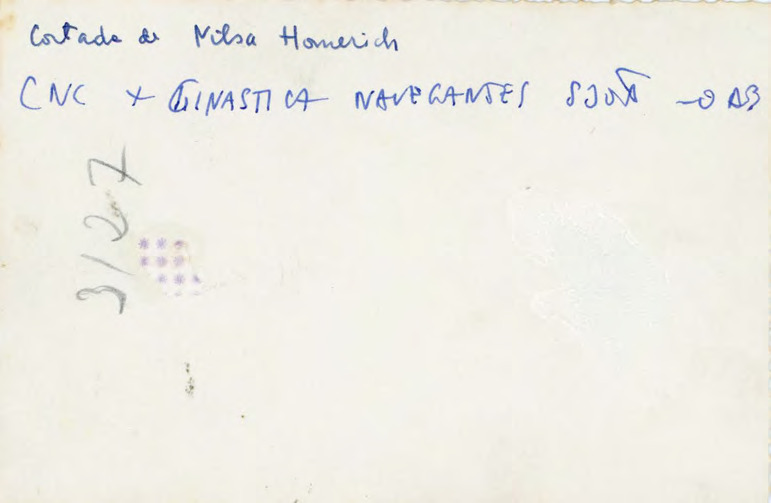 Cortada de Nilsa Homerich
CNC x GINASTICA NAVEGANTES SJOÃ
3/27